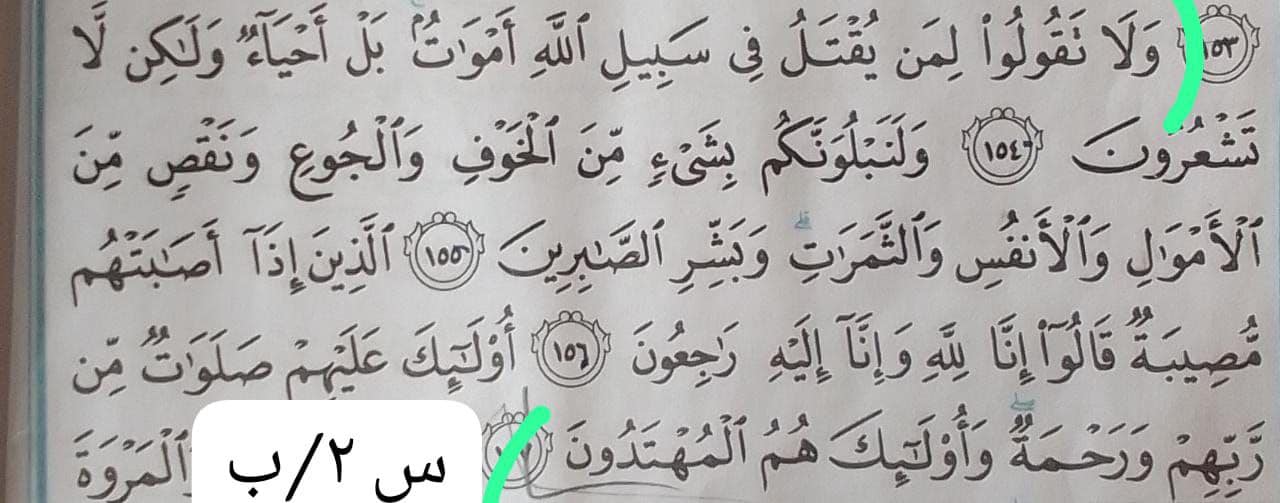 ﴿١٥٣﴾ وَلَا تَقُولُوا۟ لِمَن يُقْتَلُ فِى سَبِيلِ ٱللَّهِ أَمْوَٰتٌۢ بَلْ أَحْيَآءٌ وَلَٰكِن لَّا
تَشْعُرُونَ ﴿١٥٤﴾ وَلَنَبْلُوَنَّكُم بِشَىْءٍ مِّنَ ٱلْخَوْفِ وَٱلْجُوعِ وَنَقْصٍ مِّنَ
ٱلْأَمْوَٰلِ وَٱلْأَنفُسِ وَٱلثَّمَرَٰتِ ۗ وَبَشِّرِ ٱلصَّٰبِرِينَ ﴿١٥٥﴾ ٱلَّذِينَ إِذَآ أَصَٰبَتْهُم
مُّصِيبَةٌ قَالُوٓا۟ إِنَّا لِلَّهِ وَإِنَّآ إِلَيْهِ رَٰجِعُونَ ﴿١٥٦﴾ أُو۟لَٰٓئِكَ عَلَيْهِمْ صَلَوَٰتٌ مِّن
رَّبِّهِمْ وَرَحْمَةٌ ۖ وَأُو۟لَٰٓئِكَ هُمُ ٱلْمُهْتَدُونَ وَٱلْمَرْوَةَ
س ٢/ب